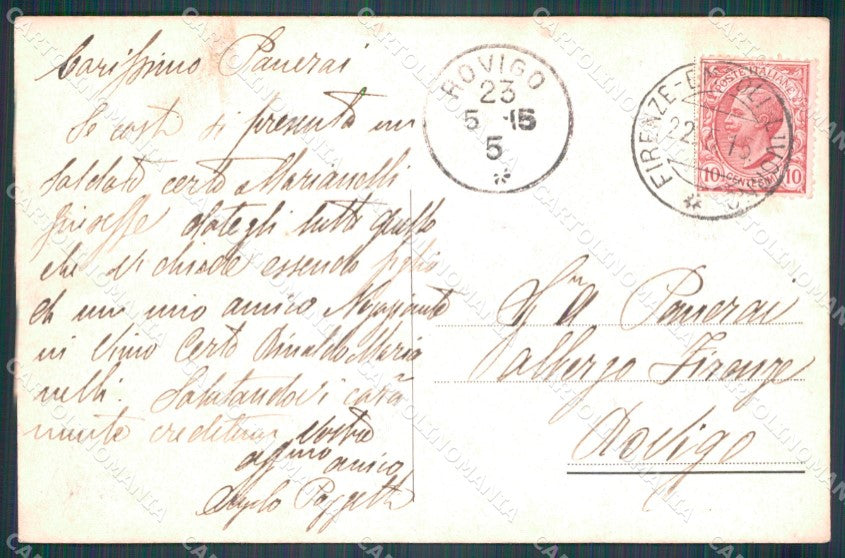 Carissimo Panerai
Se costì si presenta un
soldato certo Marianelli
Giuseppe dategli tutto quello
che vi chiede essendo figlio
di un mio amico Negoziante
in Vino Certo Rinaldo Maria
nelli. Salutandovi cara
mente credetemi vostro
aff mo amico
ROVIGO
23
5 15
5
*
FIRENZE
22
15
*
POSTE ITALIANE
10 CENTESIMI 10
Panerai
albergo Firenze
Rovigo
CARTOLINOMANIA